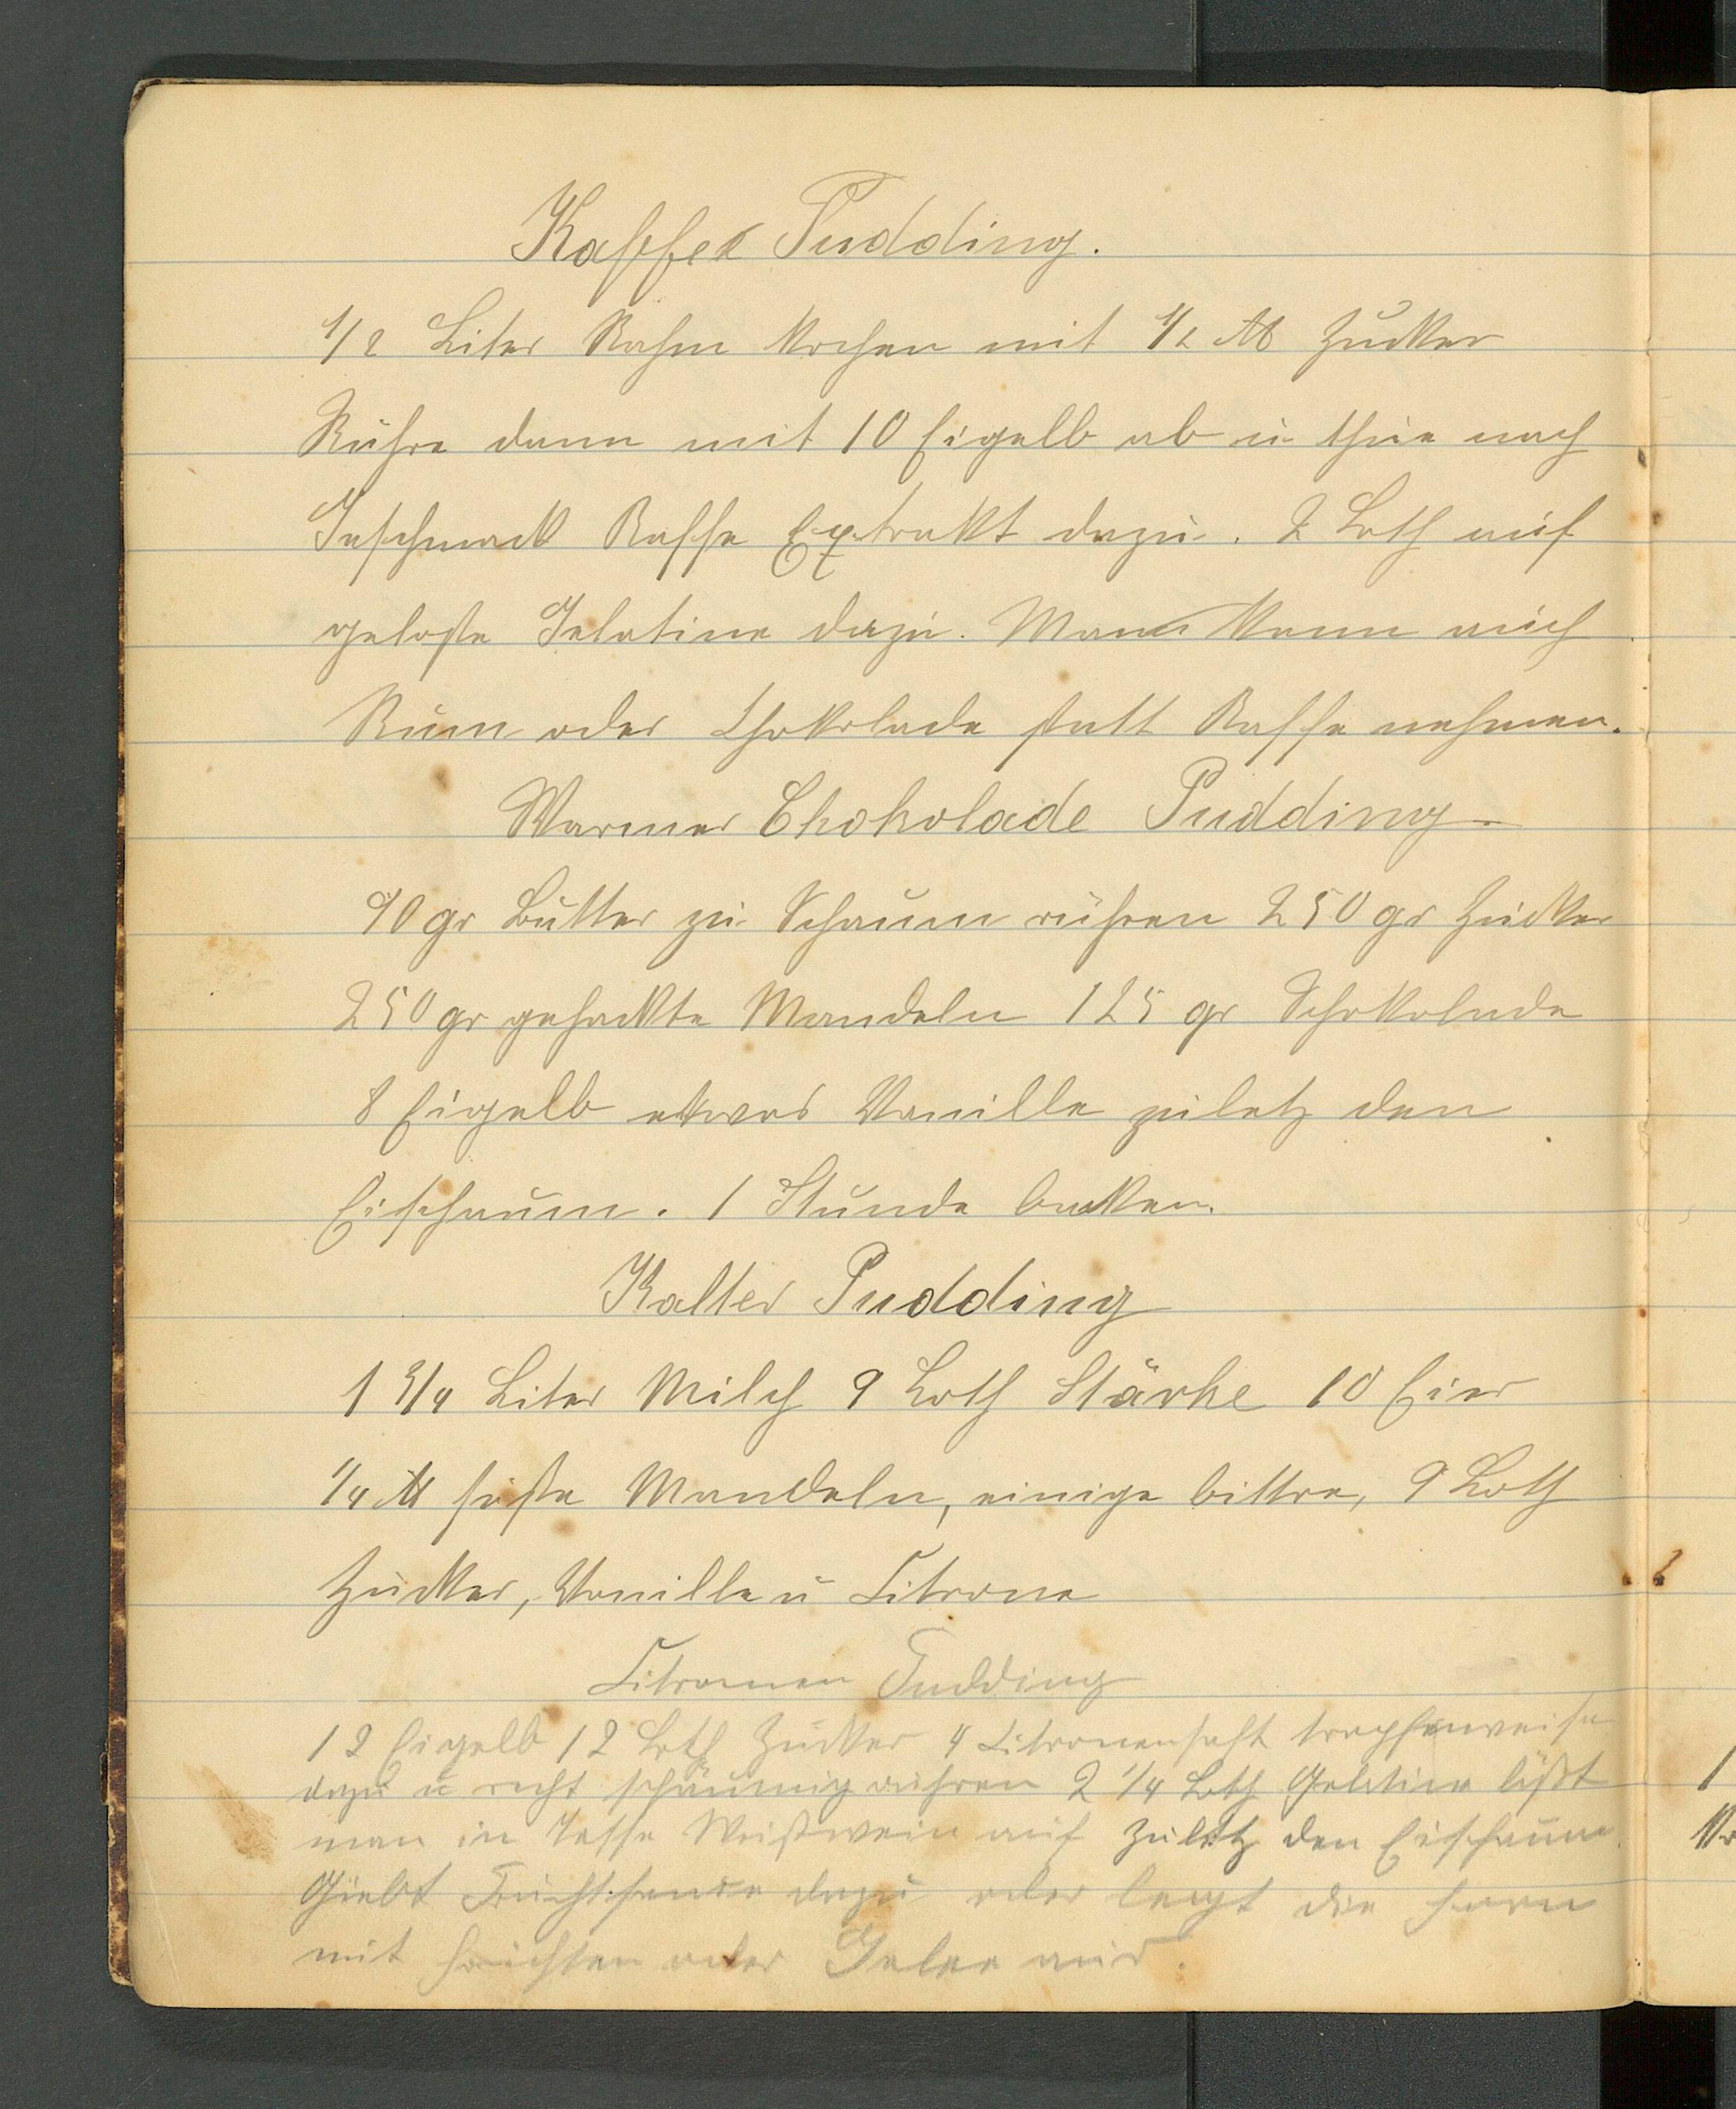 Kaffee Pudding.
1/2 Liter Rahm kochen mit 1/2 ℔ Zucker
Rühre dann mit 10 Eigelb ab u thue nach
Geschmack Kaffe Extrakt dazu. 2 Loth auf
geloste Gelatine dazu. Man kann auch
Rum oder Chokolade statt Kaffe nehmen.
Warmer Chokolade Pudding.
90 gr Butter zu Schaum rühren 250 gr Zucker
250 gr gehackte Mandeln 125 gr Schokolade
8 Eigelb etwas Vanille zuletz den
Eischaum. 1 Stunde backen.
Kalter Pudding
1 3/4 Liter Milch 9 Loth Stärke 10 Eier
1/4 ℔ süße Mandeln, einige bittre, 9 Loth
Zucker, Vanille u Citrone
Citronen Pudding
12 Eigelb 12 Loth Zucker 4 Citronensaft tropfenweise
dazu u recht schäumig rühren 2 1/4 Loth Gelatine läßt
man in Tasse Weißwein auf zuletz den Eischaum.
Giebt Fruchtsauce dazu oder legt die Form
mit Früchten oder Gelee aus.